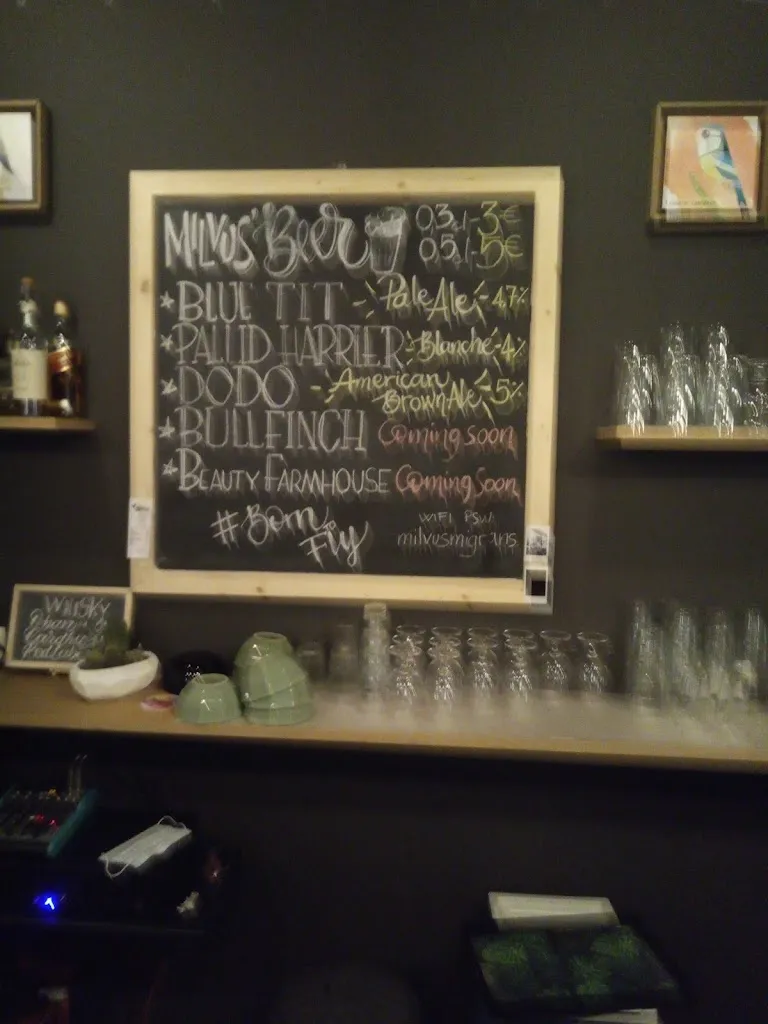 MILVUS' Beer 0,3cl-3€
0,5cl-5€
★ BLUE TIT - Pale Ale - 4,7%
★ PALLID HARRIER - Blanche - 4%
★ DODO - American Brown Ale - 5%
★ BULLFINCH Coming soon
★ BEAUTY FARMHOUSE Coming Soon
#Born to Fly
WIFI PSW
milvusmigrans
WHISKY